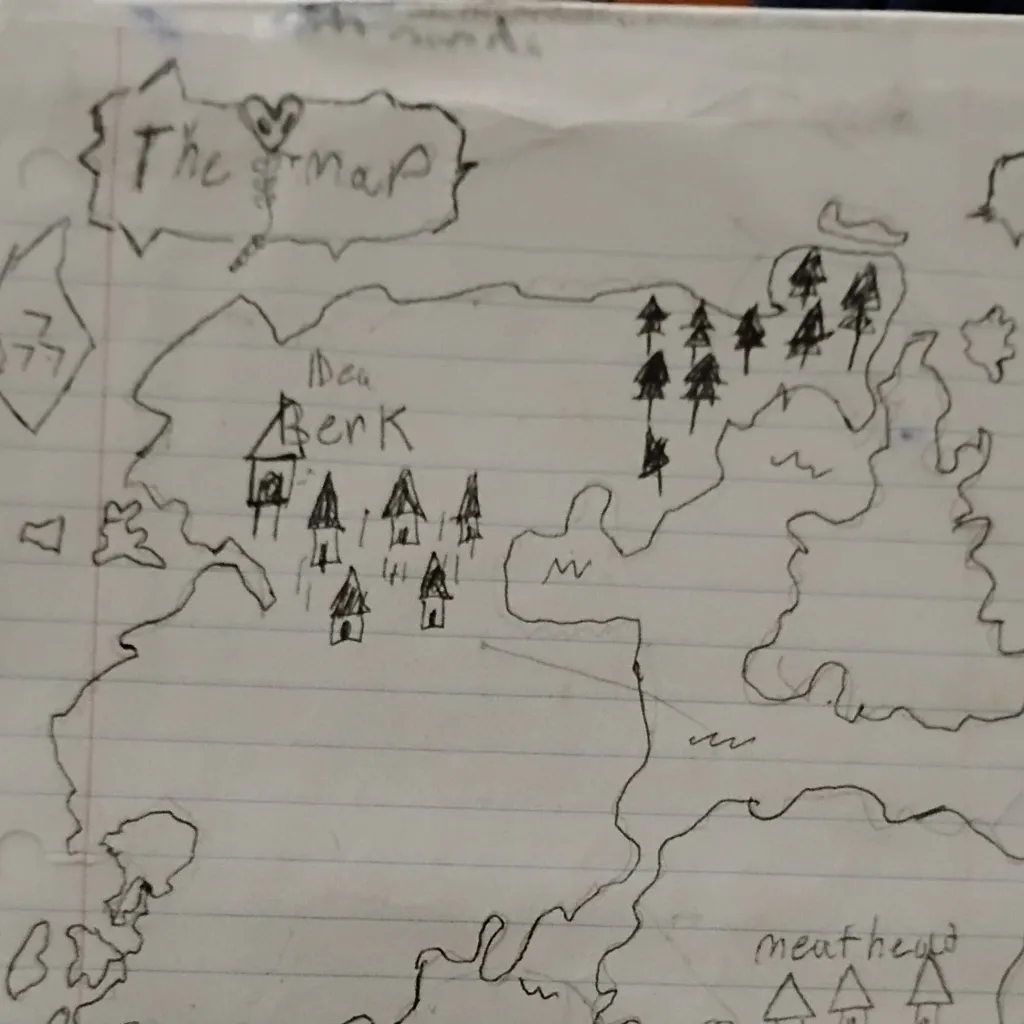 The map
IDea
Berk
meathead